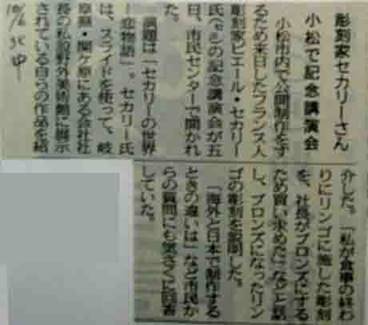 彫刻家セカリーさん
小松で記念講演会
小松市内で公開制作をす
るため来日したフランス人
彫刻家ピエール・セカリー
氏(七〇)の記念講演会が五
日、市民センターで開かれ
た。
演題は「セカリーの世界
ー恋物語」。セカリー氏
は、スライドを使って、岐
阜県・関ケ原にある会社社
長の私設野外美術館に展示
されている自らの作品を紹
介した。「私が食事の終わ
りにリンゴに施した彫刻
を、社長がブロンズにする
ため買い求めた」などと話
し、ブロンズになったリン
ゴの彫刻を説明した。
「海外と日本で制作する
ときの違いは」など市民か
らの質問にも気さくに回答
していた。
10/6 北中